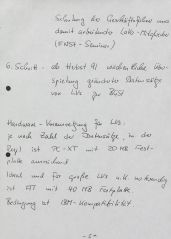 Schulung des Geschäftsführers und
damit arbeitende LaVo-Mitglieder
(ENST-Seminar)
6. Schritt - ab Herbst 91 wöchentliche Über-
spielung geänderter Datensätze
von LVs zur BGSt
Hardware-Voraussetzung für LVs:
je nach Zahl der Datensätze, in der
Regel ist PC-XT mit 20 MB Fest-
platte ausreichend
Ideal und für große LVs u.U. notwendig
ist AT mit 40 MB Festplatte
Bedingung ist IBM-Kompatibilität.
- 5 -